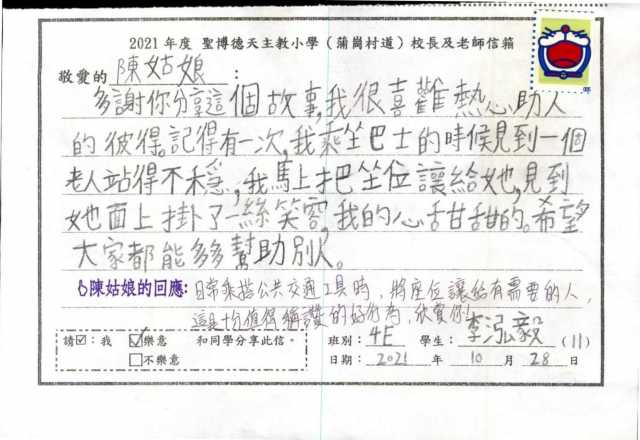 2021 年度 聖博德天主教小學(蒲崗村道)校長及老師信箱
敬愛的 陳姑娘 :
多謝你分享這個故事,我很喜歡熱心助人
的彼得。記得有一次,我乘坐巴士的時候見到一個
老人站得不穩,我馬上把坐位讓給她,見到
她面上掛了一絲笑容,我的心甜甜的。希望
大家都能多多幫助別人。
陳姑娘的回應: 日常乘搭公共交通工具時,將座位讓給有需要的人,
這是十分值得稱讚的好行為,欣賞你!
請☑:我 ☑樂意 和同學分享此信。 班別: 4E 學生: 李泓毅 (11)
□不樂意 日期: 2021 年 10 月 28 日